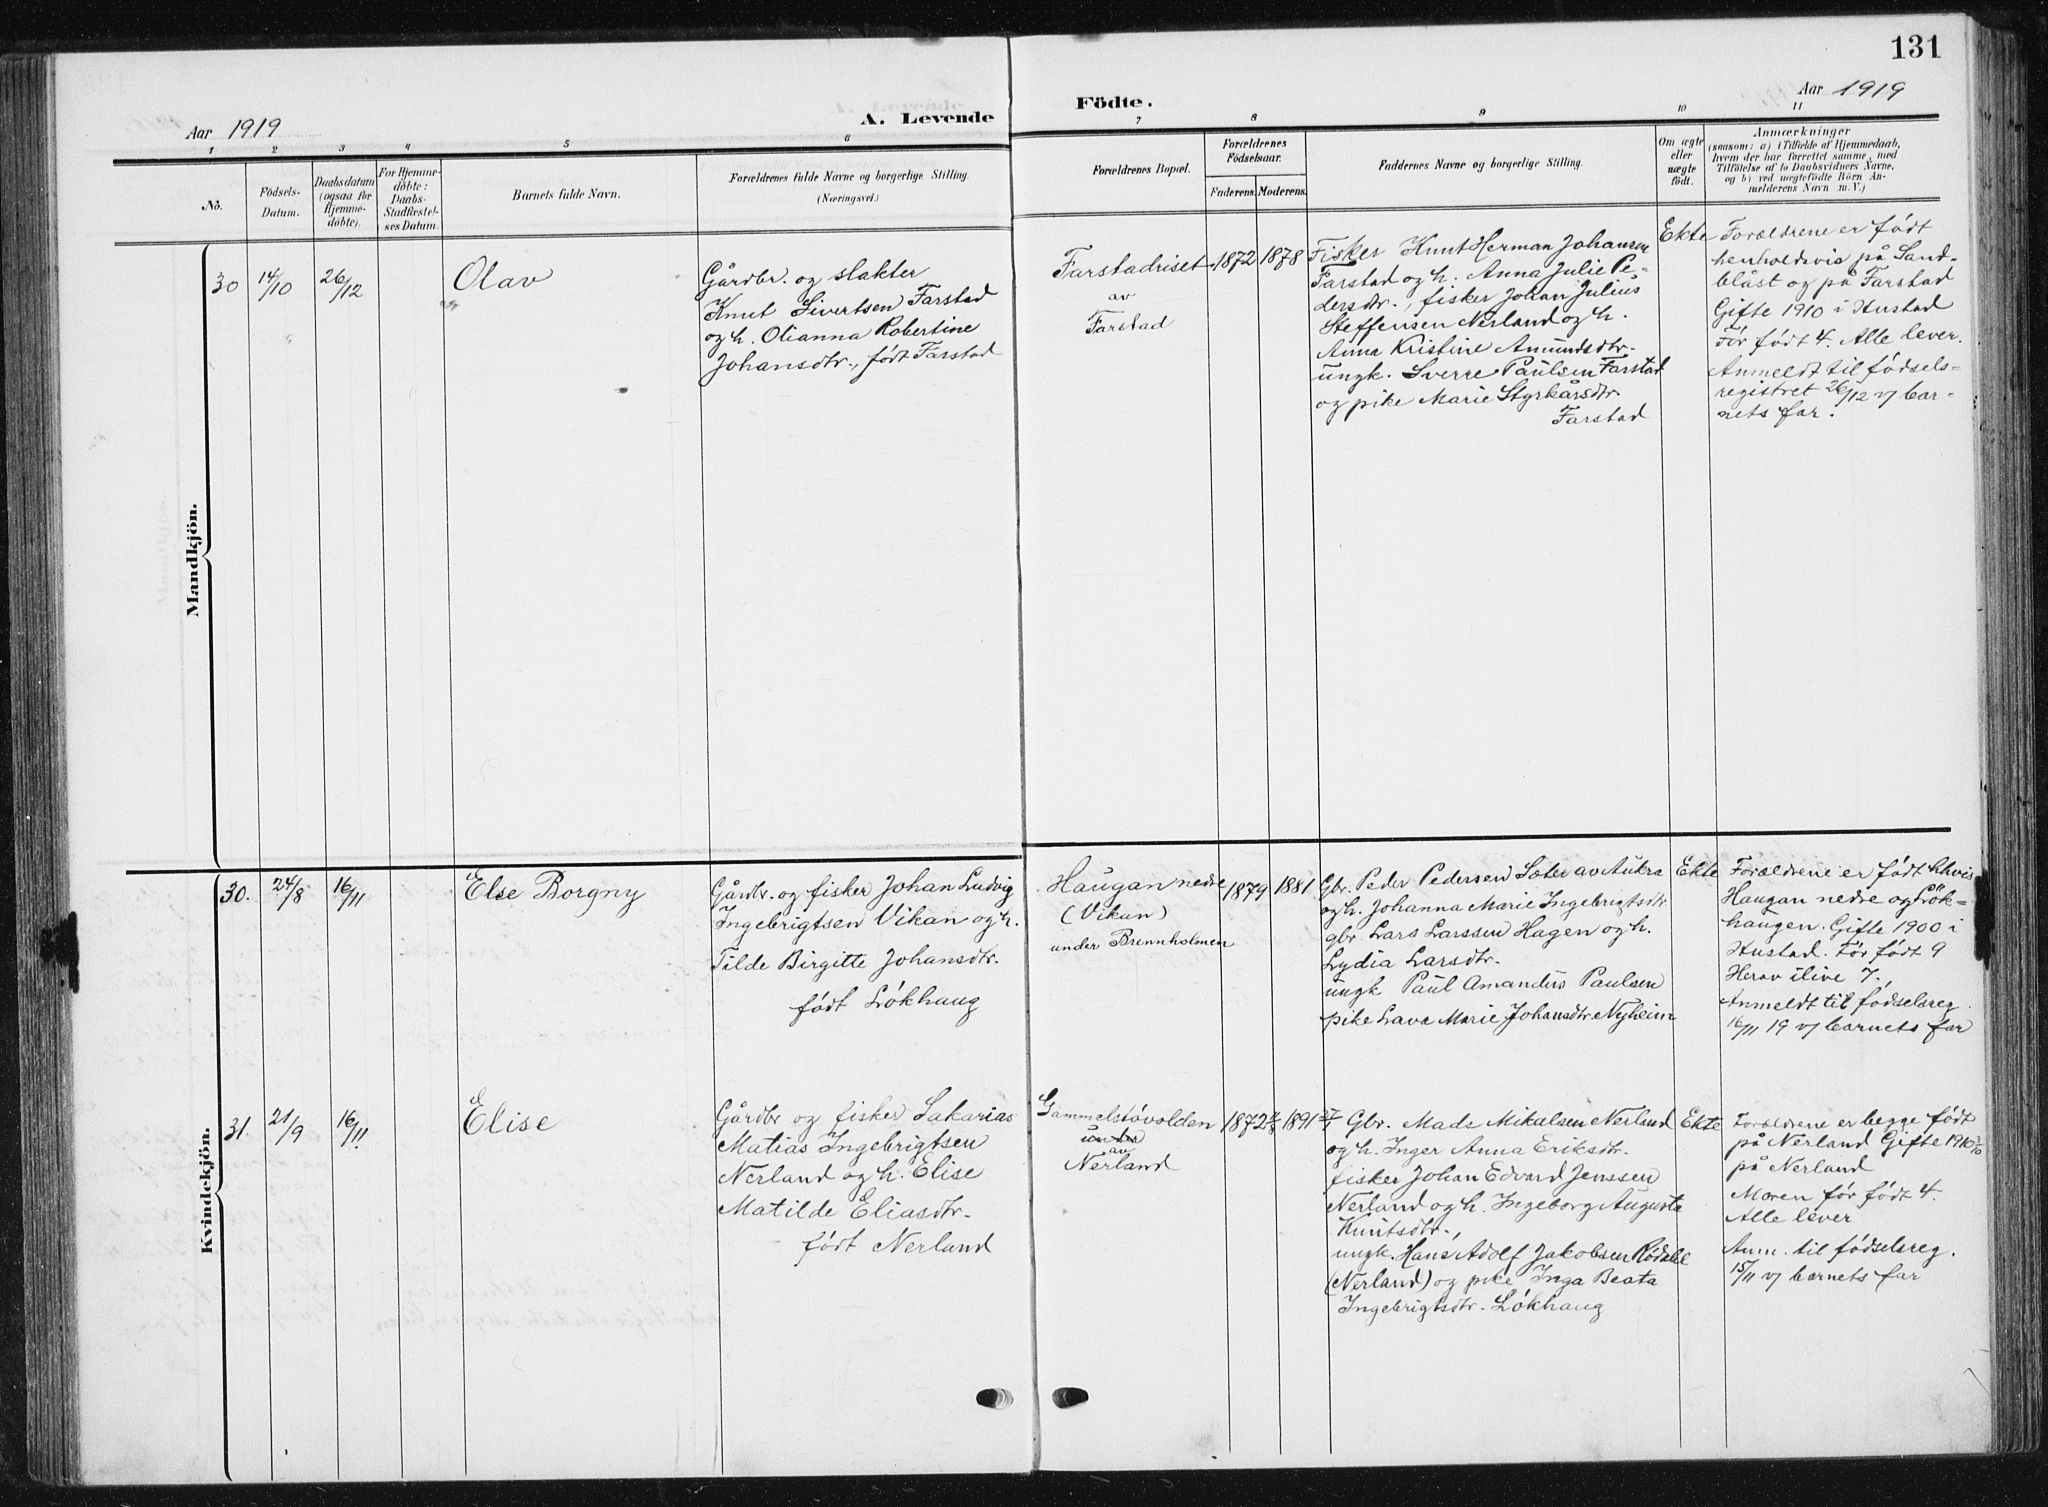 131
Aar 1919
A. Levende
Födte.
Aar 1919
1
2
3
4
5
6
7
8
9
10
11
No.
Födsels-
Datum.
Daabsdatum
(ogsaa for
Hjemme-
døbte).
For Hjemme-
döbte:
Daabs-
Stadfæstel-
ses Datum.
Barnets fulde Navn.
Forældrenes fulde Navne og borgerlige Stilling.
(Næringsvei.)
Forældrenes Bopæl.
Forældrenes
Födselsaar.
Faderens.
Moderens.
Faddernes Navne og borgerlige Stilling.
Om ægte
eller
uægte
födt.
Anmærkninger
(saasom: a) i Tilfælde af Hjemmedaab,
hvem der har forrettet samme, med
Tilföielse af to Daabsvidners Navne,
og b) ved uægtefödte Börn An-
melderens Navn m. V.)
Mandkjön.
30
14/10
26/12
Olav
Gårdbr. og slakter
Knut Sivertsen Farstad
og h. Olianna Robertine
Johansdtr., født Farstad
Farstadriset
av
Farstad
1872
1878
Fisker Knut Herman Johansen
Farstad og h. Anna Julie Pe-
dersdtr., fisker Johan Julius
Steffensen Nerland og h.
Anna Kristine Amundsdtr.
ungk. Sverre Paulsen Farstad
og pike Marie Styrkårsdtr.
Farstad
Ekte
Forældrene er født
henholdsvis på Sand-
blåst og på Farstad
Gifte 1910 i Hustad
Før født 4. Alle lever.
Anmeldt til fødsels-
registret 26/12 v/ bar-
nets far.
Kvindekjön.
30.
24/8
16/11
Else Borgny
Gårdbr. og fisker Johan Ludvig
Ingebrigtsen Vikan og h.
Tilde Birgitte Johansdtr.
født Løkhaug
Haugan nedre
(Vikan)
under Brennholmen
1879
1881
Gbr. Peder Pedersen Sæter av Aukra
og h. Johanna Marie Ingebrigtsdtr
gbr. Lars Larssen Hagen og h.
Lydia Larsdtr.
ungk Paul Amandus Paulsen
pike Lava Marie Johansdtr. Nyheim
Ekte
Forældrene er født hhvis
Haugan nedre og Løk-
haugen. Gifte 1900 i
Hustad. Før født 9
Herav ilive 7.
Anmeldt til fødselsreg.
16/11 19 v/ barnets far
31.
21/9
16/11
Elise
Gårdbr og fisker Sakarias
Matias Ingebrigtsen
Nerland og h. Elise
Matilde Eliasdtr.
født Nerland
Gammelstøvolden
under
av
Nerland
1872
1891 27/7
Gbr. Mads Mikalsen Nerland
og h. Inger Anna Eriksdtr.
fisker Johan Edvard Jenssen
Nerland og h. Ingeborg Augusta
Knutsdtr.,
ungk. Hans Adolf Jakobsen Rødahl
(Nerland) og pike Inga Beata
Ingebrigtsdtr. Løkhaug
Ekte
Forældrene er begge født
på Nerland Gifte 1910
på Nerland
Moren før født 4.
Alle lever
Anm. til fødselsreg.
15/11 v/ barnets far